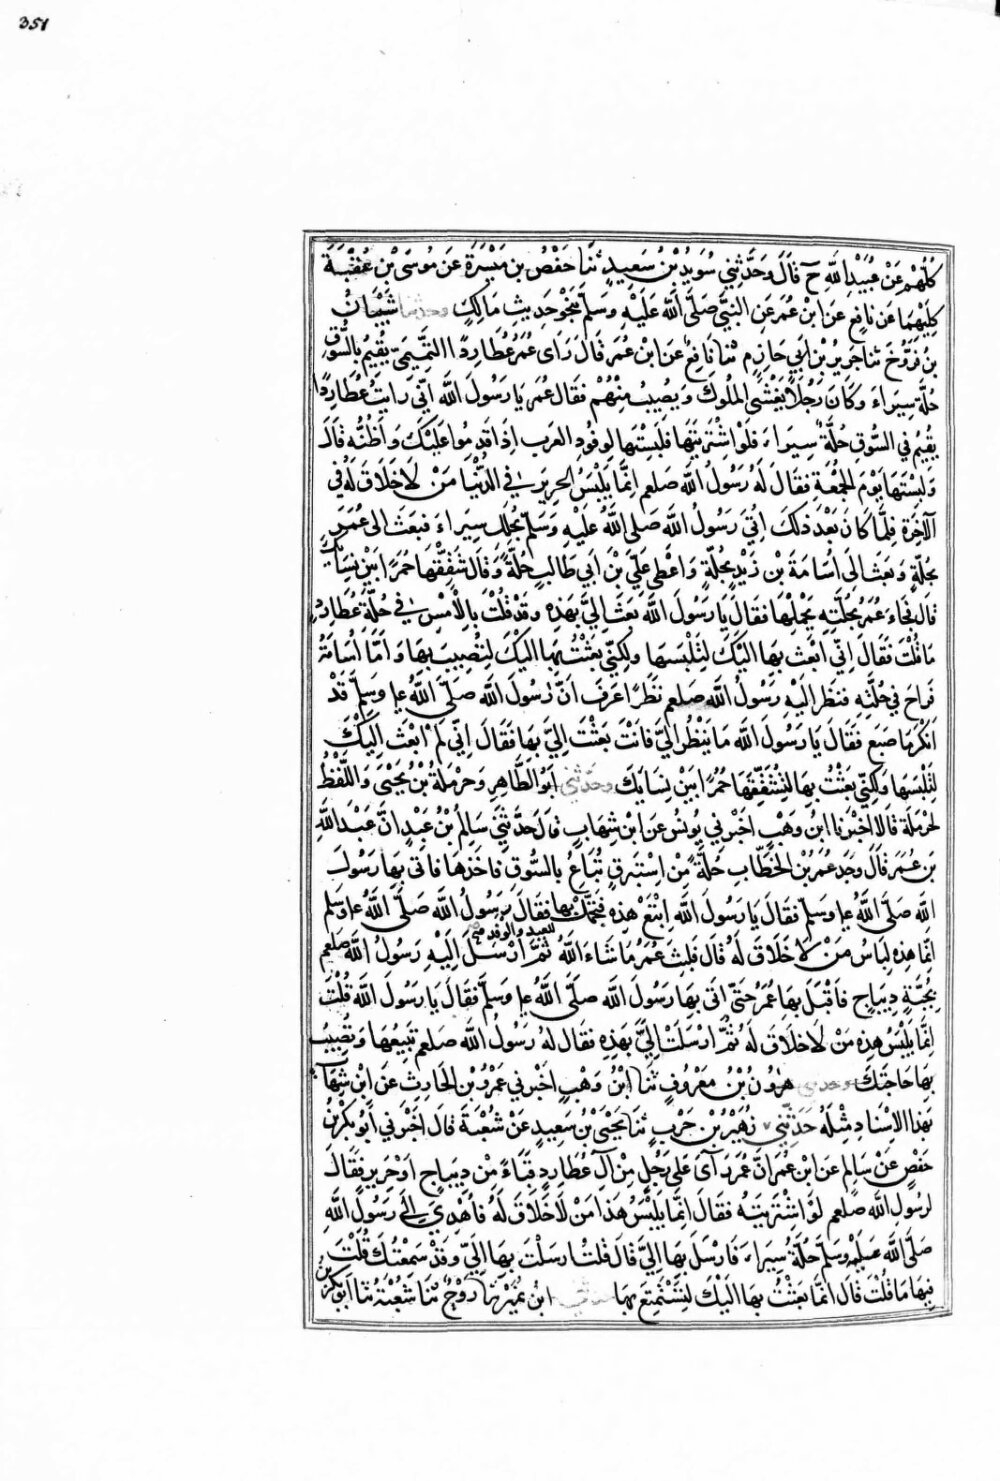 351
كُلُّهُمْ عَنْ عُبَيْدِ اللّٰهِ ح قَالَ وَحَدَّثَنِي سُوَيْدُ بْنُ سَعِيدٍ ثنَا حَفْصُ بن مَيْسَرَةَ عَن مُوسَى بْنِ عُقْبَةَ
كِلَيْهِمَا عَن نَافِعٍ عَن ابْنِ عُمَرَ عَنِ النَّبِيِّ صَلَّى اللّٰه عَلَيْهِ وَسَلَّمَ بِنَحْوِ حَدِيثِ مَالِكٍ وحدثنا شَيْبَانُ
بنُ فَرُّوخَ ثنا جَرِيرُ بْنُ أبِي حَازِمٍ ثنا نَافِعٌ عَنِ ابْنِ عُمَرَ قَالَ رَاى عُمَرُ عُطَارِدًا التَّمِيمِيَّ يُقِيمُ بِالسُّوقِ
حُلَّةً سِيَرَاءَ وَكَانَ رَجُلًا يَغْشَى الْمُلُوكَ وَيُصِيبُ مِنْهُمْ فَقَالَ عُمَر يَا رَسُولَ اللّٰهِ اِنِّي رَايتُ عُطَارِدًا
يُقِيمُ فِي السُّوقِ حُلَّةً سِيَرَاءَ فَلَوْ اشْتَرَيْتَهَا فَلَبِسْتَهَا لِوُفُودِ العَرَبِ اِذَا قَدِمُوا عَلَيْكَ وَاَظُنُّه قَالَ
وَلَبِسْتَهَا يَوْمَ الْجُمُعَةِ فَقَالَ لَهُ رَسُولُ اللّٰه صلعم اِنَّمَا يَلْبَسُ الْحَرِيرَ فِي الدُّنْيَا مَنْ لَا خَلَاقَ لَهُ فِي
اَلآخِرَةِ فَلَمَّا كَانَ بَعْدَ ذَلِكَ اُتِيَ رَسُولُ اللّٰهِ صَلَّى اللّٰهُ عَلَيْهِ وَسَلَّمَ بِحُلَلٍ سِيَرَاءَ فَبَعَثَ الى عُمَرَ
بِحُلَّةٍ وَبَعَثَ اِلَى اُسَامَةَ بْنِ زَيْدٍ بِحُلَّةٍ وَاَعْطَى عَلِيَّ بْنَ اَبِي طَالِبٍ حُلَّةً وَقَالَ شَقِّقْهَا خُمُرًا بَيْنَ نِسَايِكَ
قَالَ فَجَاءَ عُمَرُ بِحُلَّتِهِ يَحْمِلُهَا فَقَالَ يَا رَسُولَ اللّٰهِ بَعَثْتَ اِلَيَّ بِهَذِهِ وَقَدْ قُلْتَ بِالْاَمْسِ فِي حُلَّةِ عُطَارِدٍ
مَا قُلْتَ فَقَالَ اِنِّي اَبْعَثْ بِهَا اِلَيْكَ لِتَلْبَسَهَا وَلَكِنِّي بَعَثْتُ بِهَا اِلَيْكَ لِتُصِيبَ بِهَا وَاَمَّا اُسَامَةُ
فَرَاحَ فِي حُلَّتِهِ فَنَظَرَ اِلَيْهِ رَسُولُ اللّٰهِ صلعم نَظَرًا عَرَفَ اَنَّ رَسُولَ اللّٰه صَلَّى اللّٰهُ ع‍ا وسَلَّمَ قَدْ
اَنْكَرَ مَا صَنَعَ فَقَالَ يَا رَسُولَ اللّٰه مَا تَنْظُر اِلَيَّ فَاَنْتَ بَعَثْتَ اِلَيَّ بِهَا فَقَالَ اِنِّي لَمْ اَبْعَثْ اِلَيْكَ
لِتَلْبَسَهَا وَلَكِنِّي بَعَثْتُ بِهَا لِتُشَقِّقَهَا خُمُرًا بَيْنَ نِسَايِكَ وحَدَّثَنِي اَبُو الطَّاهِرِ وَحَرْمَلَةُ بْنُ يَحْيَى وَاللَّفْظُ
لِحَرْمَلَةَ قَالَا اَخْبَرَنَا ابْنُ وَهْبٍ اَخْبَرَنِي يُونُسُ عَنِ ابْنِ شِهَابٍ قَالَ حَدَّثَنِي سَالِمُ بْنُ عَبْدِ اَنَّ عَبْدَ اللّٰهِ
بْنَ عُمَرَ قَالَ وَجَدَ عُمَرُ بْنُ الْخَطَّابِ حُلَّةً مِنْ اِسْتَبْرَقٍ تُبَاعُ بِالسُّوقِ فَاَخَذَهَا فَاتَى بِهَا رَسُولَ
اللّٰه صَلَّى اللّٰهُ ع‍ا وسَلَّمَ فَقَالَ يَا رَسُولَ اللّٰهِ اِبْتَعْ هَذِهِ فَتَجَمَّلْ بِهَا فَقَالَ رَسُولُ اللّٰه صَلَّى اللّٰهُ ع‍ا وسَلَّم
للعيد وللوفد صح
اِنَّمَا هَذِهِ لِبَاسُ مَنْ لَا خَلَاقَ لَهُ قَالَ فَلَبِثَ عُمَرُ مَا شَاءَ اللّٰهُ ثُمَّ اَرْسَلَ اِلَيْهِ رَسُولُ اللّٰهِ صلعم
بِجُبَّةِ دِيبَاجٍ فَاَقْبَلَ بِهَا عُمَرُ حَتَّى اَتَى بِهَا رَسُولَ اللّٰه صَلَّى اللّٰهُ ع‍ا وسَلَّمَ فَقَالَ يَا رَسُولَ اللّٰهِ قُلْتَ
اِنَّمَا يَلْبَسُ هَذِهِ مَنْ لَا خَلَاقَ لَهُ ثُمَّ اَرْسَلْتَ اِلَيَّ بِهَذِهِ فَقَالَ لَهُ رَسُولُ اللّٰه صلعم تَبِيعُهَا وَتُصِيبُ
بِهَا حَاجَتَكَ وحدثنا هَرُونُ بْنُ مَعْرُوفٍ ثَنَا ابْنُ وَهْبٍ اَخْبَرَنِي عَمْرُو بْنُ الْحَارِثِ عَنِ ابْنِ شِهَابٍ
بِهَذَا الاِسْنَادِ مِثْلَهُ حَدَّثَنِي زُهَيْرُ بْنُ حَرْبٍ ثنَا يَحْيَى بْنُ سَعِيدٍ عَنْ شُعْبَةَ قَالَ اَخْبَرَنِي اَبُو بَكْرِ بْنُ
حَفْصٍ عَنْ سَالِمٍ عَنِ ابْنِ عُمَرَ اَنَّ عُمَرَ رَآى عَلَى رَجُلٍ مِنْ آلِ عُطَارِدٍ قَبَاءً مِنْ دِيبَاجٍ اَوْ حَرِيرٍ فَقَالَ
لِرَسُولِ اللّٰهِ صلعم لَوِ اشْتَرَيْتَهُ فَقَالَ اِنَّمَا يَلْبَسُ هَذَا مَنْ لَا خَلَاقَ لَهُ فَاُهْدِيَ اِلَى رَسُولِ اللّٰهِ
صَلَّى اللّٰه عَلَيْهِ وَسَلَّمَ حُلَّةٌ سِيَرَاءُ فَاَرْسَلَ بِهَا اِلَيَّ قَالَ قُلْتُ اَرْسَلْتَ بِهَا اِلَيَّ وَقَدْ سَمِعْتُكَ قُلْتَ
فِيهَا مَا قُلْتَ قَالَ اِنَّمَا بَعَثْتُ بِهَا اِلَيْكَ لِتَسْتَمْتِعَ بِهَا ابْنُ نُمَيْرٍ ثنا رَوْحٌ ثنَا شُعْبَةُ ثنا اَبُو بَكْرِ بْنُ